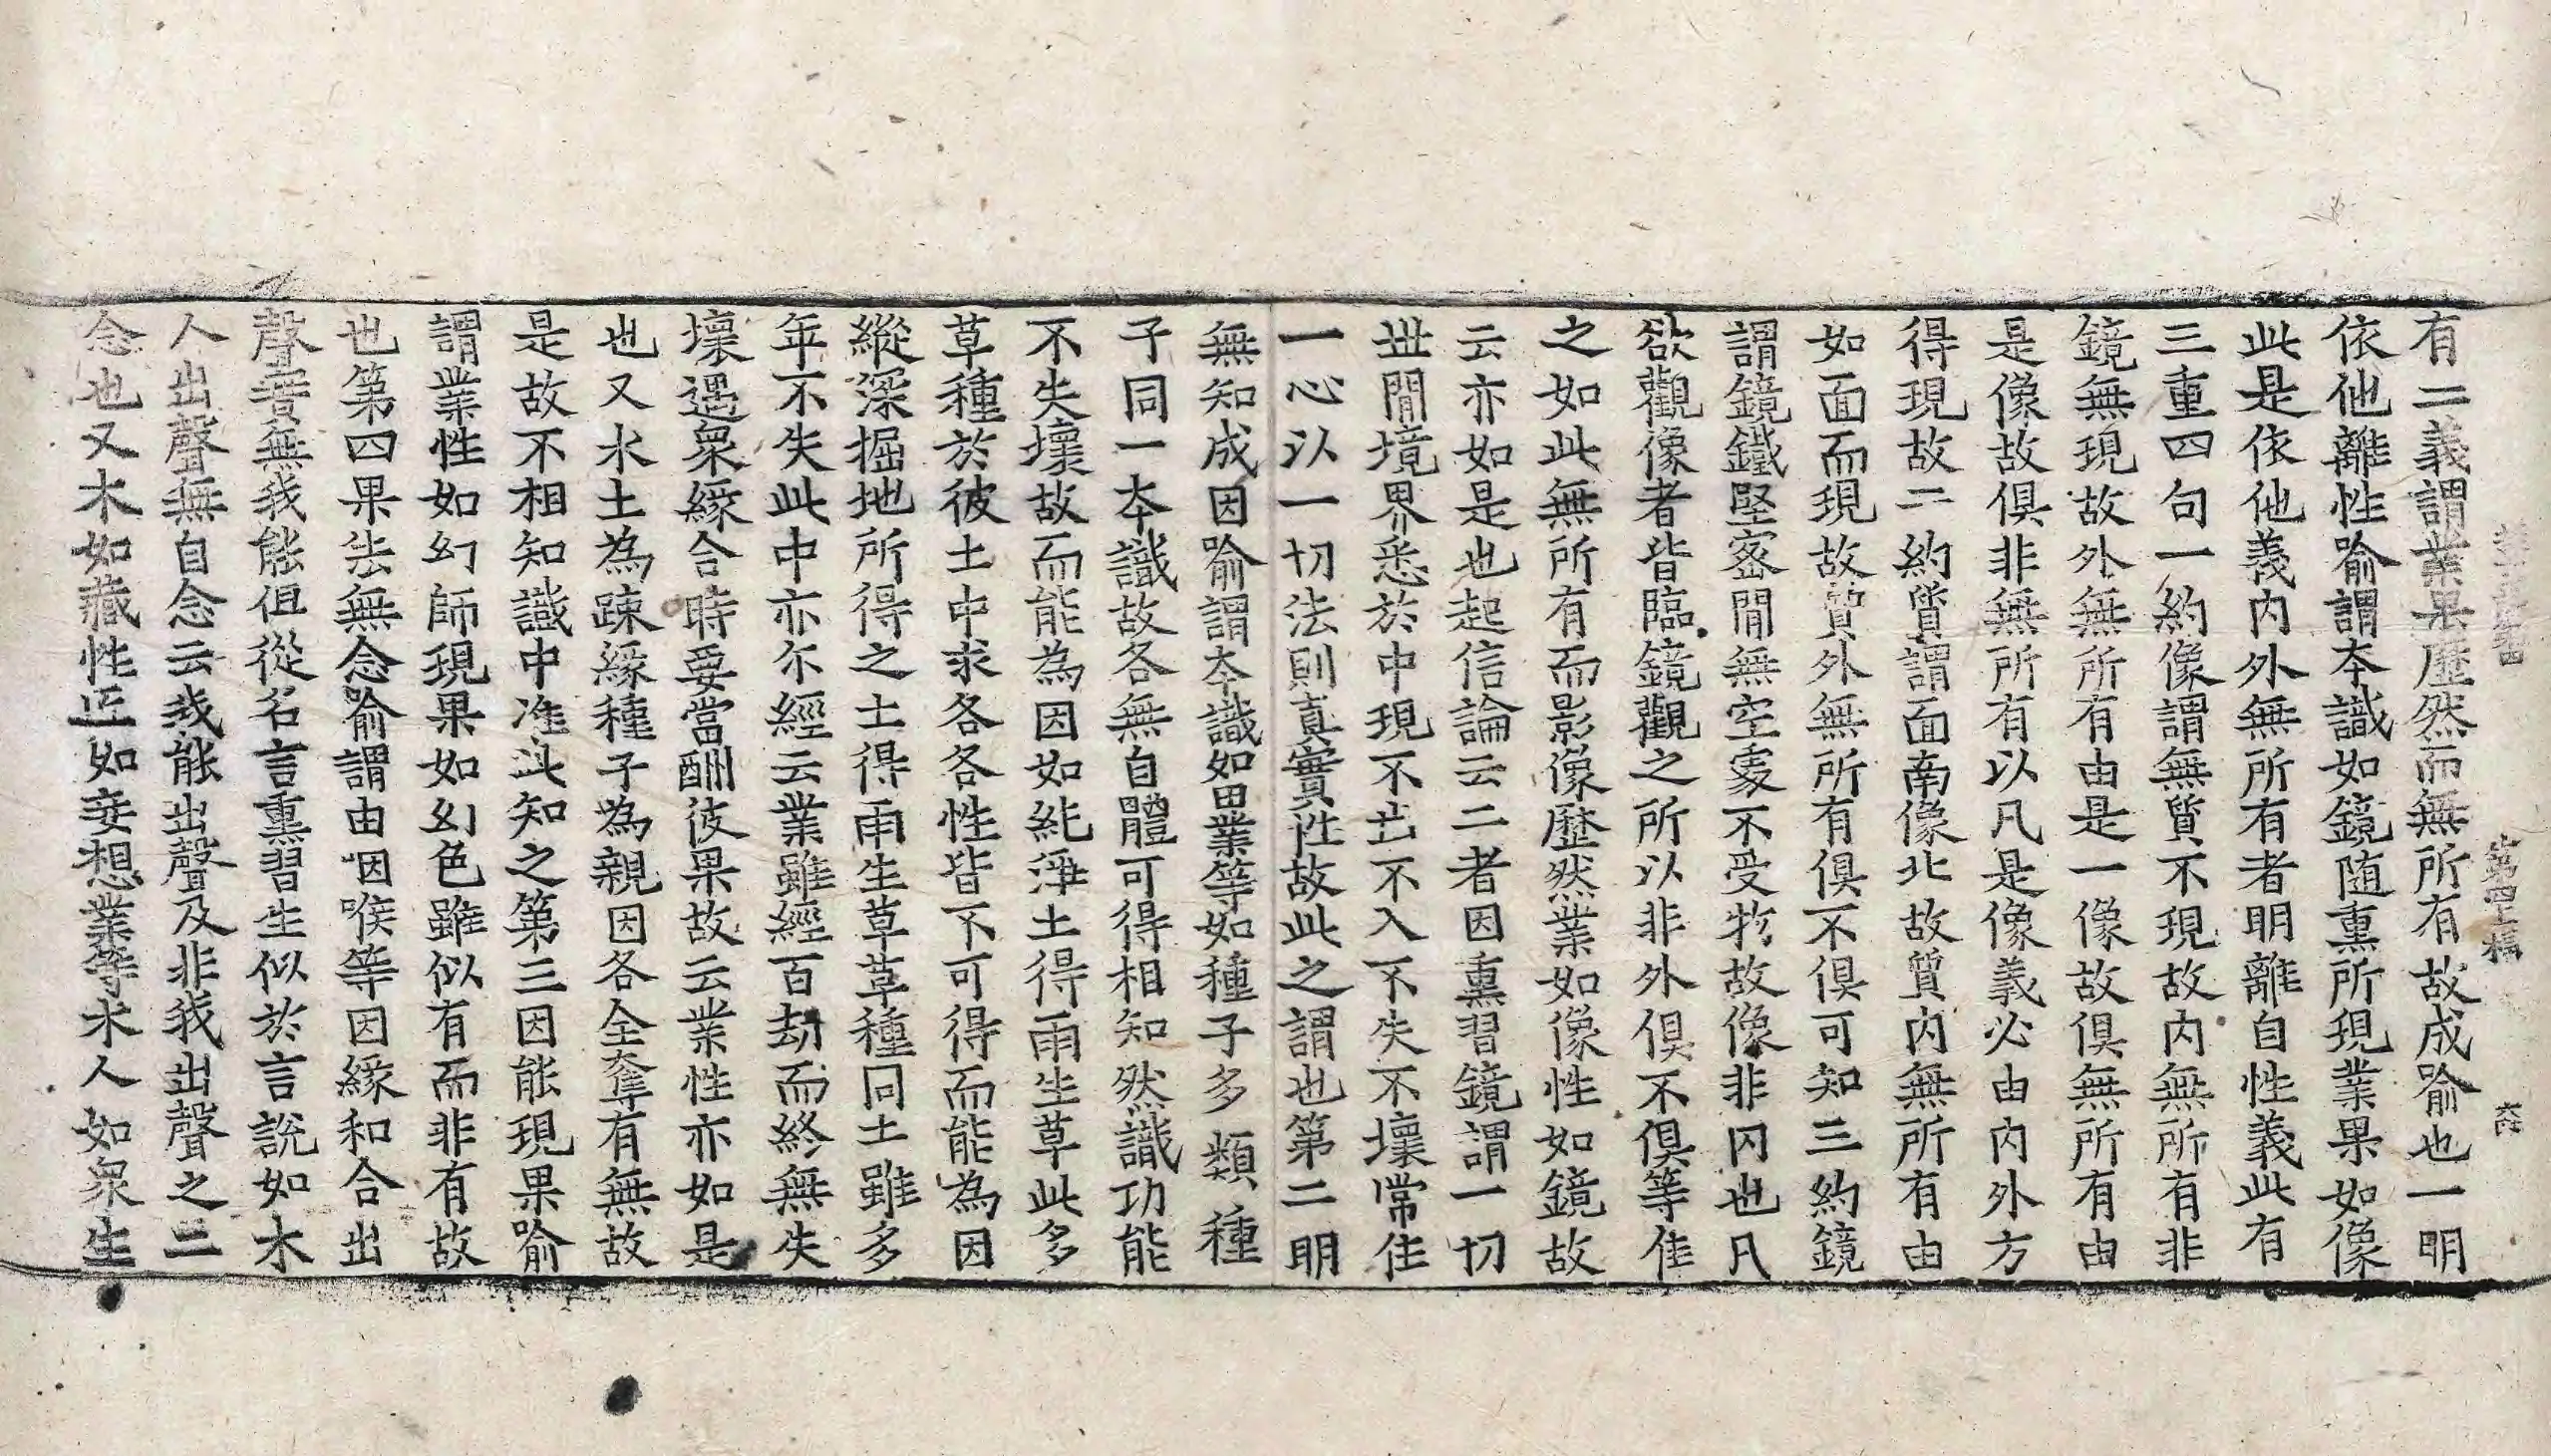 有二義謂業果歷然而無所有故成喻也一明
依他離性喻謂本識如鏡随熏所現業果如像
此是依他義内外無所有者明離自性義此有
三重四句一約像謂無質不現故内無所有非
鏡無現故外無所有由是一像故俱無所有由
是像故俱非無所有以凡是像義必由内外方
得現故二約質謂面南像北故質内無所有由
如面而現故質外無所有俱不俱可知三約鏡
謂鏡鐵堅密閒無空處不受物故像非内也凡
欲觀像者皆臨鏡觀之所以非外俱不俱等准
之如此無所有而影像歷然業如像性如鏡故
云亦如是也起信論云二者因熏習鏡謂一切
世閒境界悉於中現不出不入不失不壞常住
一心以一切法則真實性故此之謂也第二明
無知成因喻謂本識如田業等如種子多類種
子同一本識故各無自體可得相知然識功能
不失壞故而能為因如純淨土得雨生草此多
草種於彼土中求各各性皆不可得而能為因
縱深掘地所得之土得雨生草草種同土雖多
年不失此中亦尓經云業雖經百劫而終無失
壞遇衆緣合時要當酬彼果故云業性亦如是
也又水土為踈緣種子為親因各全奪有無故
是故不相知識中准此知之第三因能現果喻
謂業性如幻師現果如幻色雖似有而非有故
也第四果法無念喻謂由咽喉等因緣和合出
聲實無我能但從名言熏習生似於言說如木
人出聲無自念云我能出聲及非我出聲之二
念也又木如藏性匠如妄想業等木人如衆生